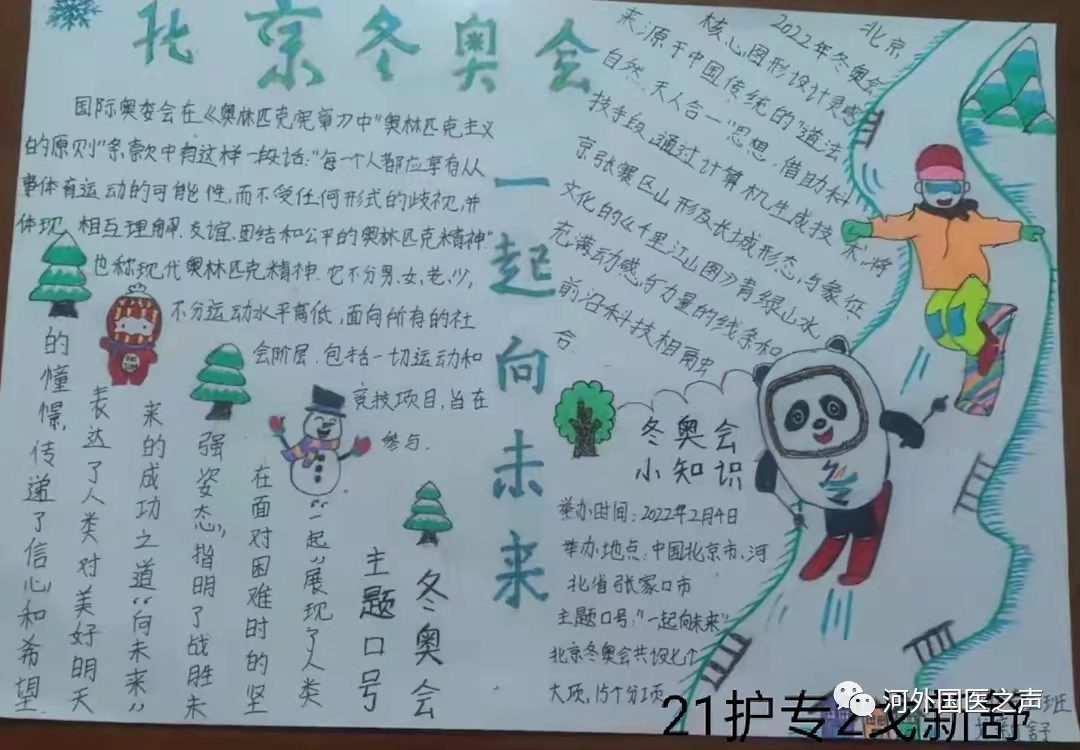 北京冬奥会
一起向未来
国际奥委会在《奥林匹克宪章》中"奥林匹克主义
的原则"条款中有这样一段话:"每一个人都应享有从
事体育运动的可能性,而不受任何形式的歧视,并
体现相互理解、友谊、团结和公平的奥林匹克精神"
也称现代奥林匹克精神.它不分男、女、老、少,
不分运动水平高低,面向所有的社
会阶层.包括一切运动和
竞技项目,旨在
参与.
冬奥会
主题口号
"一起"展现了人类
在面对困难时的坚
强姿态,指明了战胜未
来的成功之道"向未来"
表达了人类对美好明天
的憧憬,传递了信心和希望.
北京
2022年冬奥会
核心图形设计灵感
来源于中国传统的"道法
自然、天人合一"思想,借助科
技手段,通过计算机生成技术,将
京张赛区山形及长城形态,与象征
文化的《千里江山图》青绿山水,
充满动感与力量的线条和
前沿科技相融
合
冬奥会
小知识
举办时间:2022年2月4日
举办地点:中国北京市、河
北省张家口市
主题口号:"一起向未来"
北京冬奥会共设七个
大项,15个分项
21护专2戈新舒
河外国医之声